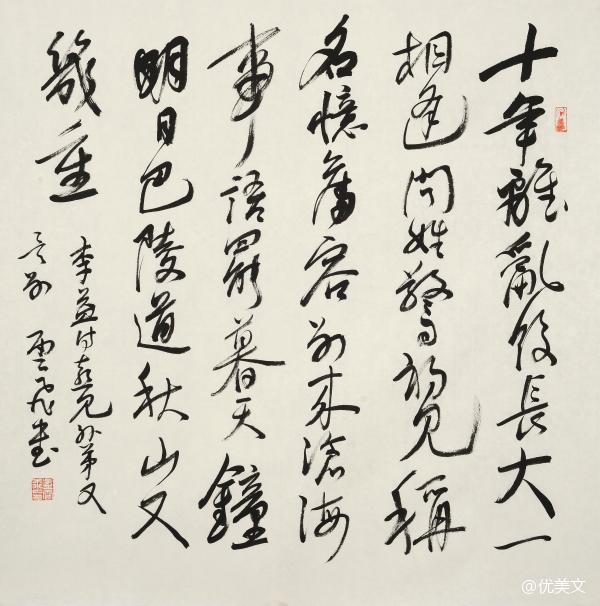 十年離亂後長大一
相逢問姓驚初見稱
名憶舊容別來滄海
事語罷暮天鐘
明日巴陵道秋山又
幾重
李益詩喜見外弟又
言別 雲飛書
@优美文